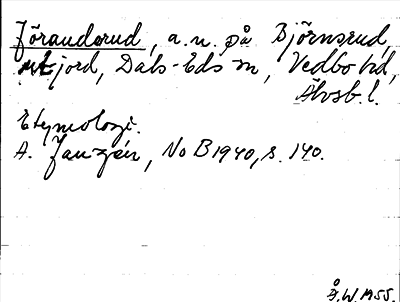 Föranderud, a.n. på Björnsrud,
utjord, Dals-Eds sn, Vedbo hd,
Älvsb. l.
Etymologi.
A. Janzén, NoB 1940, s. 140.
Å.W. 1955.